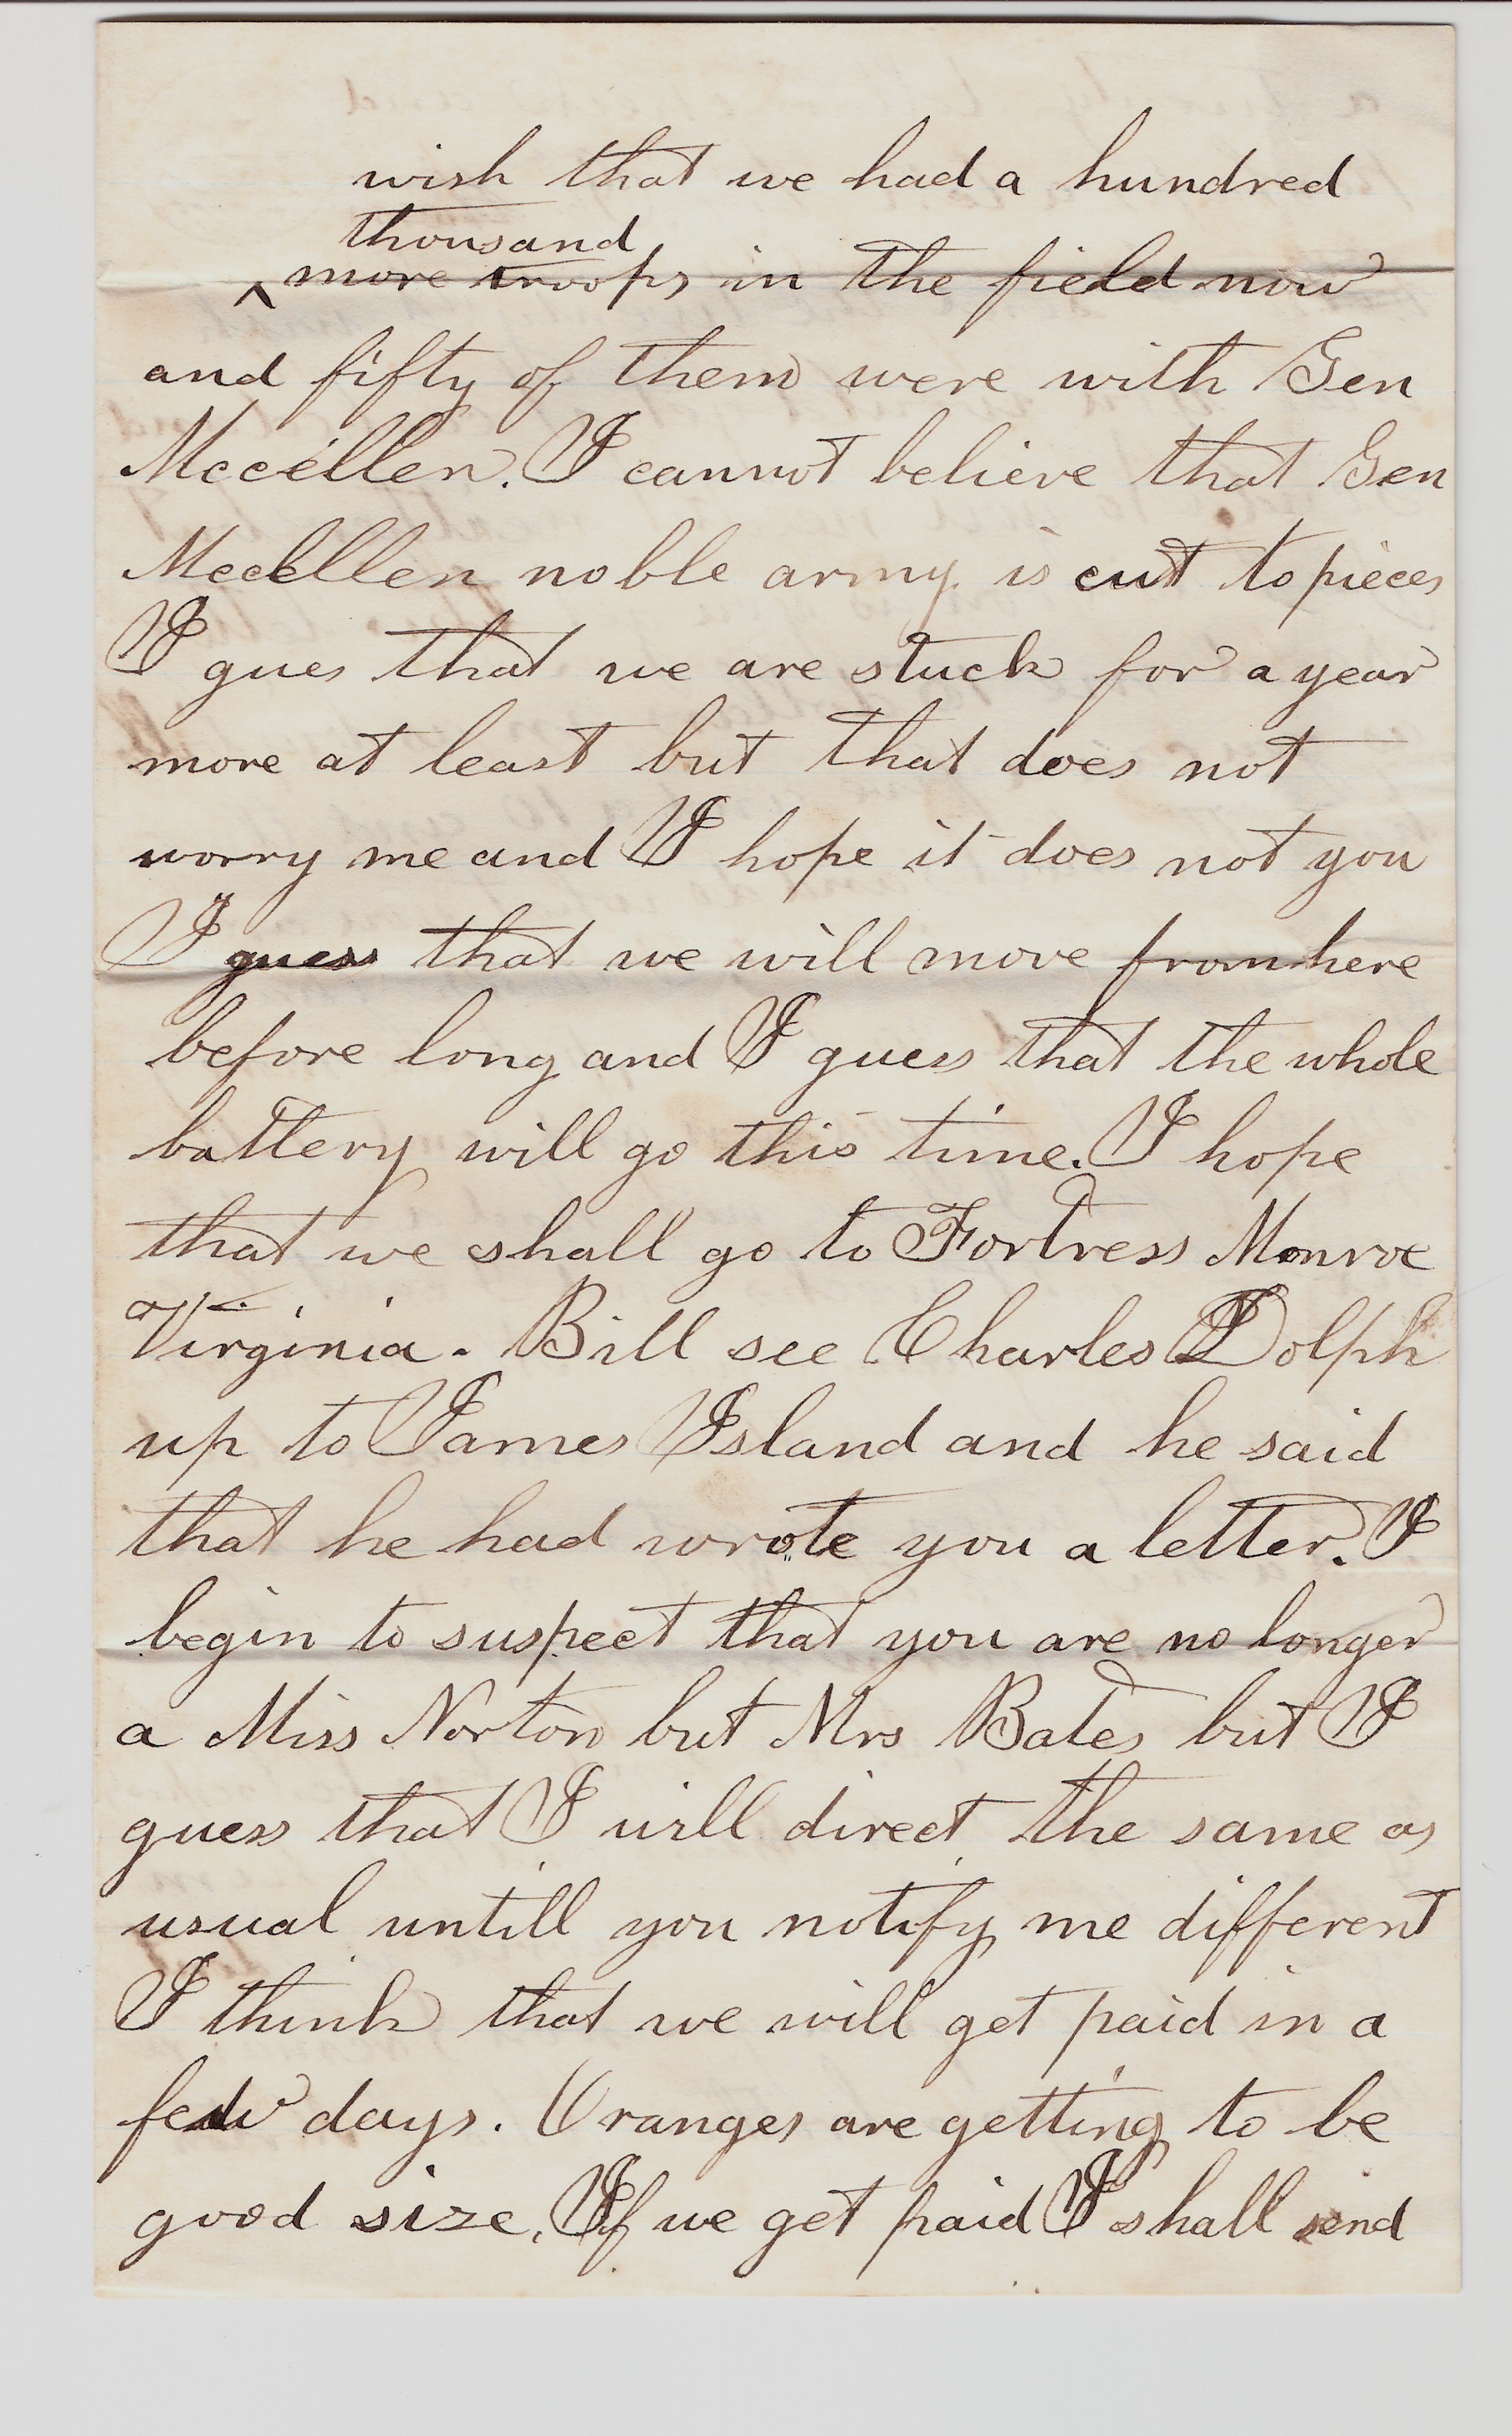 wish that we had a hundred
thousand
^ more troops in the field now
and fifty of them were with Gen
Mccellen. I cannot believe that Gen
Mccellen noble army is cut to pieces
I gues that we are stuck for a year
more at least but that does not
worry me and I hope it does not you
I guess that we will move from here
before long and I guess that the whole
battery will go this time. I hope
that we shall go to Fortress Monroe
Virginia. Bill see Charles Dolph
up to James Island and he said
that he had wrote you a letter. I
begin to suspect that you are no longer
a Miss Norton but Mrs Bates but I
guess that I will direct the same as
usual untill you notify me different
I think that we will get paid in a
few days. Oranges are getting to be
good size. If we get paid I shall send